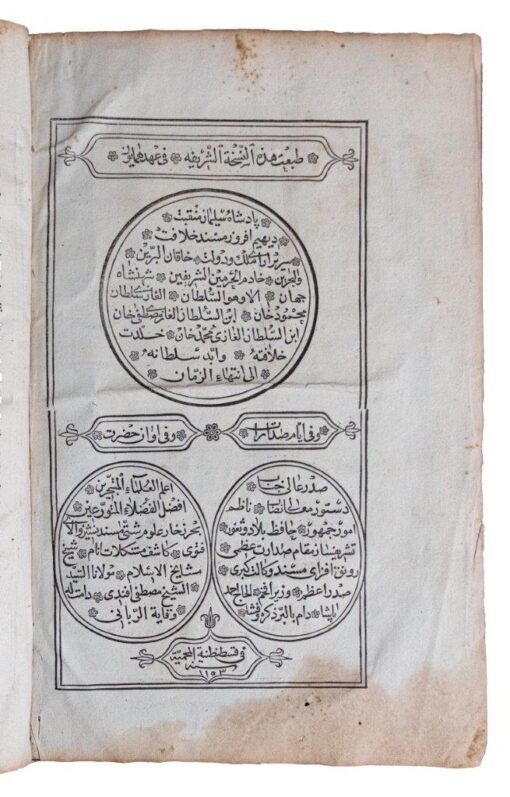 طبعت هذه النسخة الشريفه في عهد همايون
پادشاه سليمان منقبت
ديهيم افروز مسند خلافت
سرير اراى ملك ودولت خاقان البرين
والبحرين خادم الحرمين الشريفين شهنشاه
جهان الا وهو السلطان الغازى سلطان
محمود خان ابن السلطان الغازى مصطفى خان
ابن السلطان الغازى محمد خان خلدت
خلافته وابد سلطانه
الى انتهاء الزمان
وفى ايام صدارت
وفى اوان حضرت
صدر عالى
دستور معالى ناظم
امور جمهور حافظ بلاد وثغور
تشريفساز مقام صدارت عظمى
رونق افزاى مسند وكالت كبرى
صدر اعظم وزير افخم الحاج احمد
پاشا دام بالبر ذكره وفشا
اعلم العلماء المتبحرين
افضل الفضلاء المتورعين
بحر زخار علوم شتى مسند نشين والاى
فتوى كاشف مشكلات انام شيخ
مشايخ الاسلام مولانا السيد
الشيخ مصطفى افندى دامت له
وقاية الربانى
فى قسطنطنية المحمية
سنه
١١٥٣